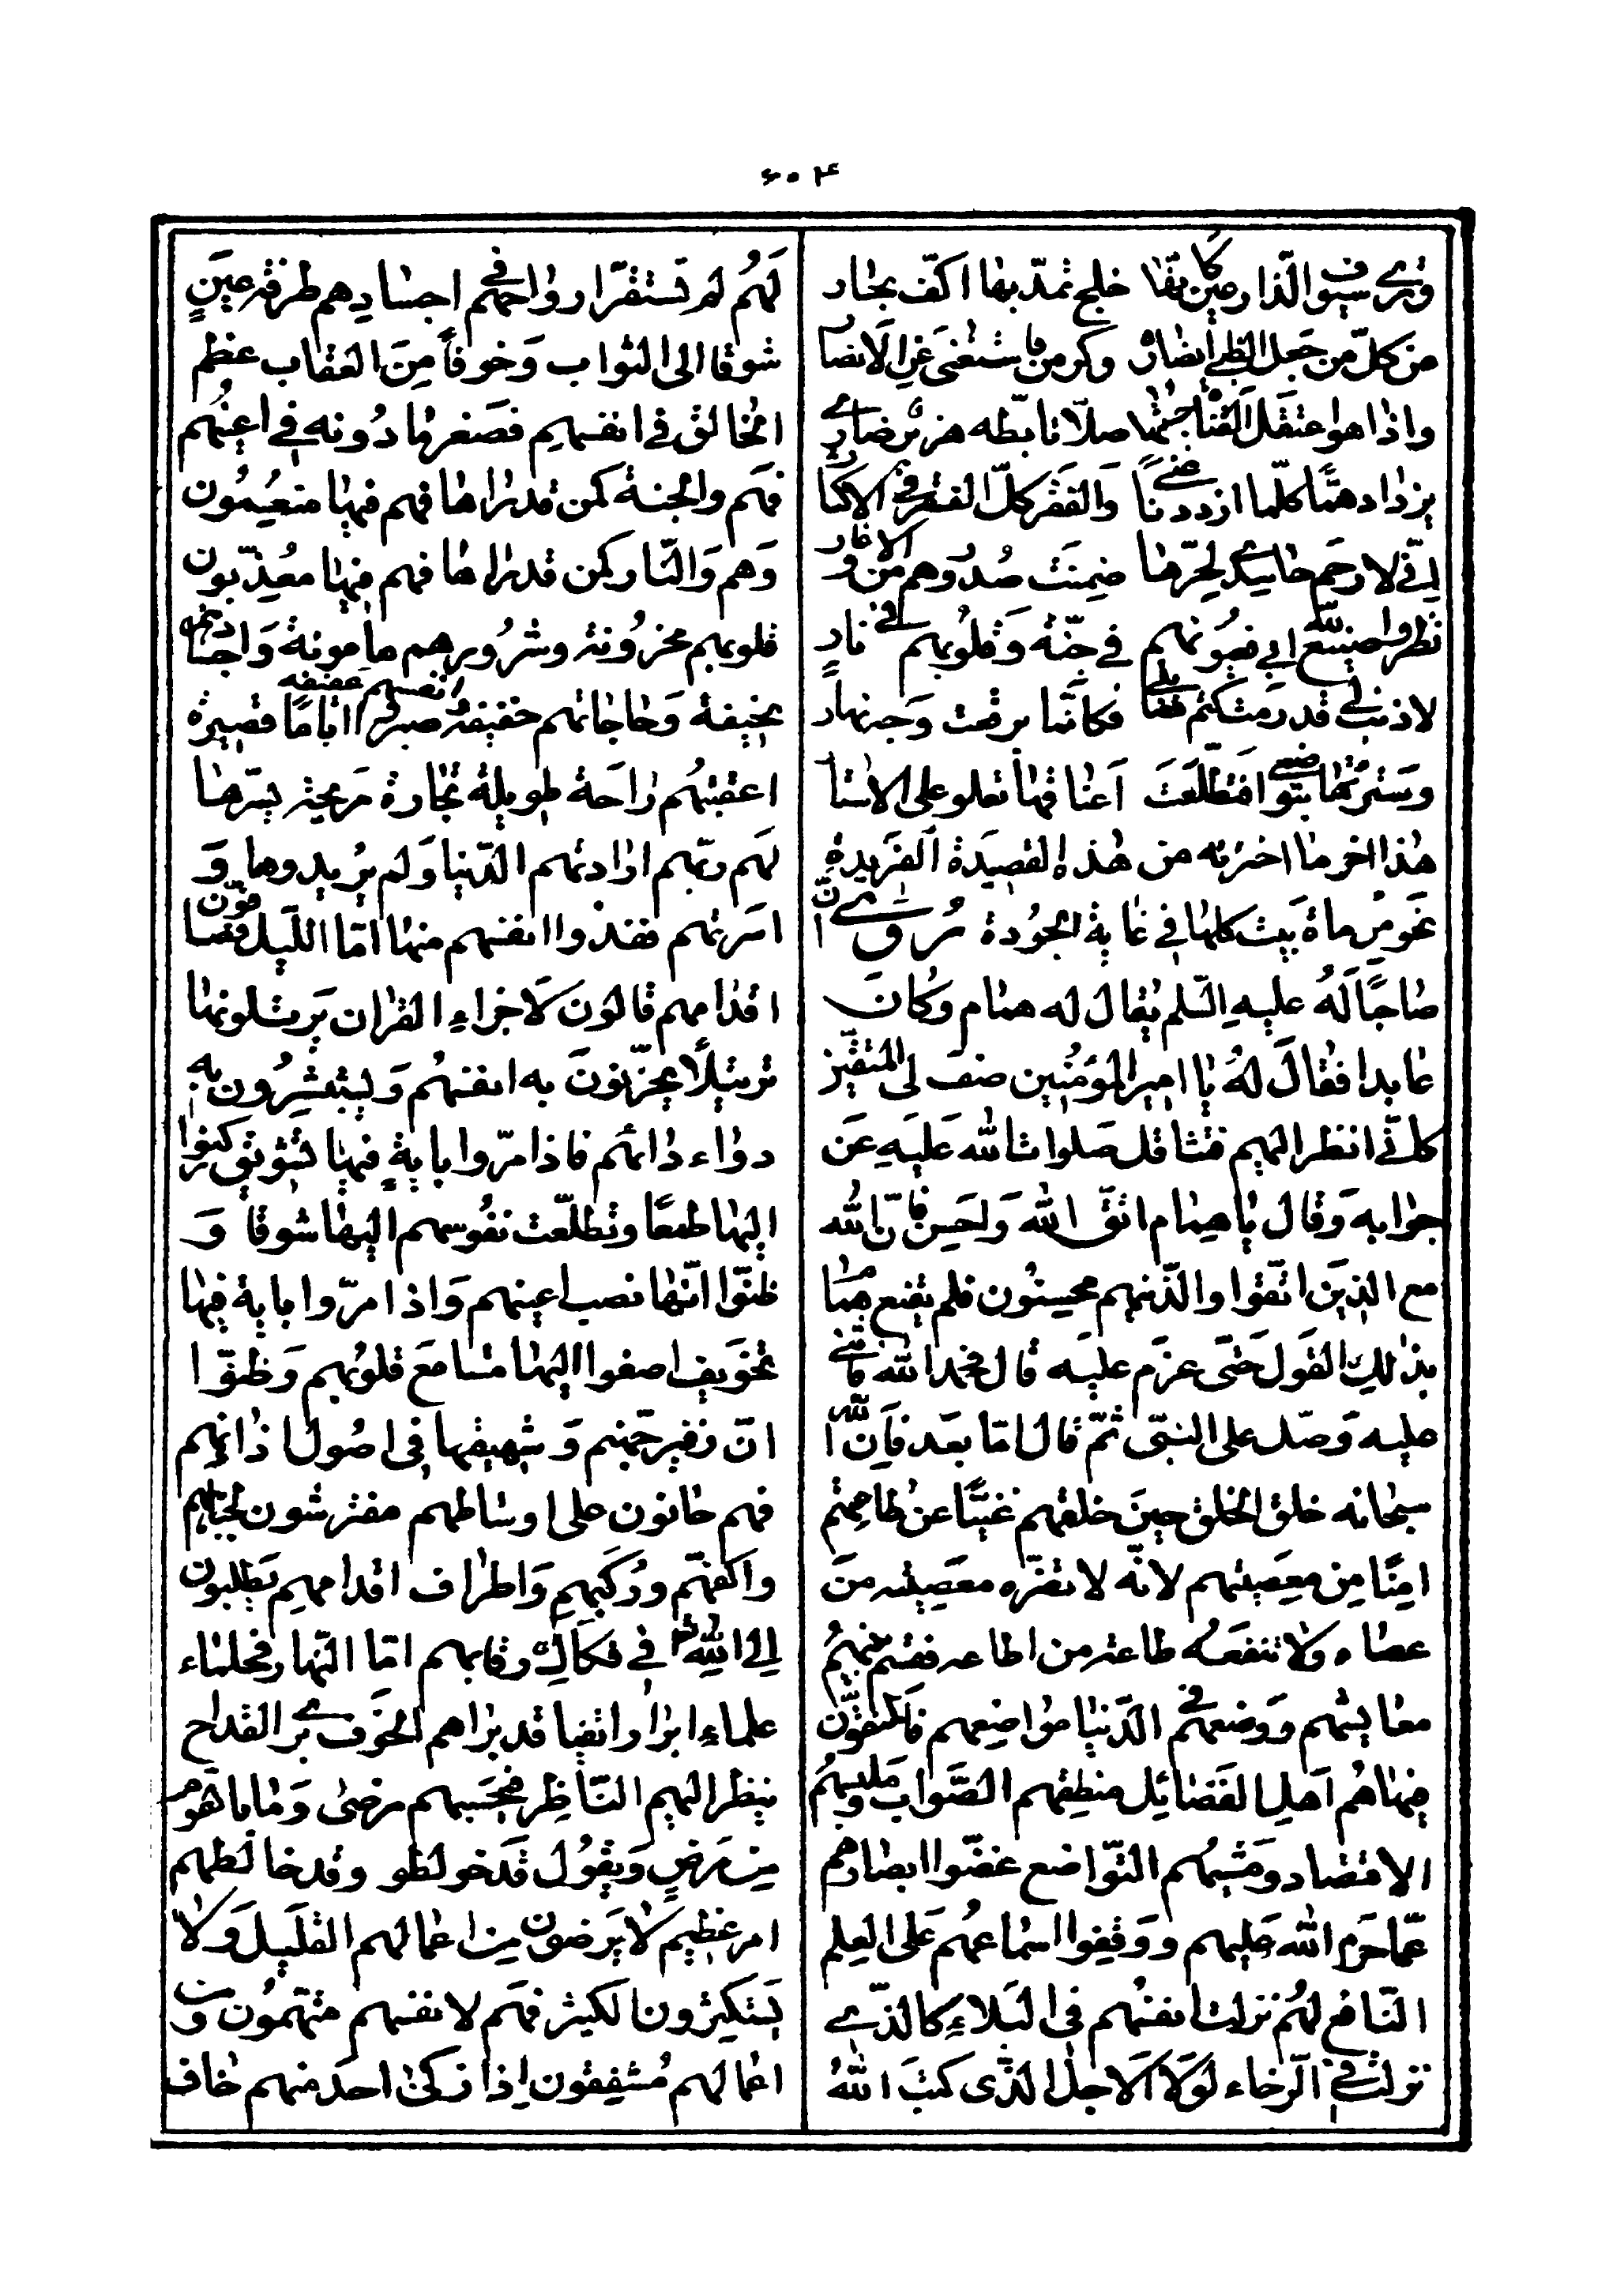 ۶۰۴
وترى سيوف الدارعين كانها خلج تمد بها اكف بحار
من كل من جعل الظبى انصاره وكرمن فاستغنى عن الانصار
واذا هو اعتقل القناة حسبتها صلا تابطه هزبر ضارى
يزداد هما كلما ازددنا غنى والفقر كل الفقر فى الاكثار
انى لارحم حاسدى لحر ما ضمنت صدورهم من الاوغار
نظروا صنيع الله بى فعيونهم فى جنة وقلوبهم فى نار
لا ذنب لى قد رمت كتم فضائلى فكانما برقعت وجه نهار
وسترتها بتواضعى فتطلعت اعناقها تعلو على الاستار
هذا اخر ما اخترته من هذه القصيدة الفريدة
نحو من ماة بيت كلها فى غاية الجودة روى ان
صاحبا له عليه السلم يقال له همام وكان
عابدا فقال له يا امير المؤمنين صف لى المتقين
كانى انظر اليهم فتثاقل صلوات الله عليه عن
جوابه وقال يا همام اتق الله واحسن فان الله
مع الذين اتقوا والذينهم محسنون فلم يقنع همام
بذلك القول حتى عزم عليه قال فحمد الله واثنى
عليه وصلى على النبى ثم قال اما بعد فان الله
سبحانه خلق الخلق حين خلقهم غنيا عن طاعتهم
امنا من معصيتهم لانه لا تضره معصيته من
عصاه ولا تنفعه طاعته من اطاعه فقسم بينهم
معايشهم ووضعهم فى الدنيا مواضعهم فالمتقون
فيها هم اهل الفضائل منطقهم الصواب وملبسهم
الاقتصاد ومشيهم التواضع غضوا ابصارهم
عما حرم الله عليهم ووقفوا اسماعهم على العلم
النافع لهم نزلت انفسهم فى البلاء كالذى
نزلت فى الرخاء لولا الاجل الذى كتب الله
لهم لم تستقر ارواحهم فى اجسادهم طرفة عين
شوقا الى الثواب وخوفا من العقاب عظم
الخالق فى انفسهم فصغر ما دونه فى اعينهم
فهم والجنة كمن قد راها فهم فيها منعمون
وهم والنار كمن قد راها فهم فيها معذبون
قلوبهم محزونة وشرورهم مامونة واجسادهم
نحيفة وحاجاتهم خفيفة وانفسهم عفيفه صبروا اياما قصيرة
اعقبتهم راحة طويلة تجارة مربحة يسرها
لهم ربهم ارادتهم الدنيا ولم يريدوها و
اسرتهم ففدوا انفسهم منها اما الليل فصافون
اقدامهم تالون لاجزاء القران يرتلونها
ترتيلا يحزنون به انفسهم ويستبشرون به
دواء دائهم فاذا مروا باية فيها تشويق ركنوا
اليها طمعا وتطلعت نفوسهم اليها شوقا و
ظنوا انها نصب اعينهم واذا مروا باية فيها
تخويف اصغوا اليها مسامع قلوبهم وظنوا
ان زفير جهنم وشهيقها فى اصول اذانهم
فهم حانون على اوساطهم مفترشون لجباههم
واكفهم وركبهم واطراف اقدامهم يطلبون
الى الله فى فكاك رقابهم اما النهار فحلماء
علماء ابرار اتقيا قد براهم الخوف برى القداح
ينظر اليهم الناظر فيحسبهم مرضى وما بالقوم
من مرض ويقول قد خولطو وقد خالطهم
امر عظيم لا يرضون من اعمالهم القليل ولا
يستكثرون الكثير فهم لانفسهم متهمون ومن
اعمالهم مشفقون اذا زكى احد منهم خاف